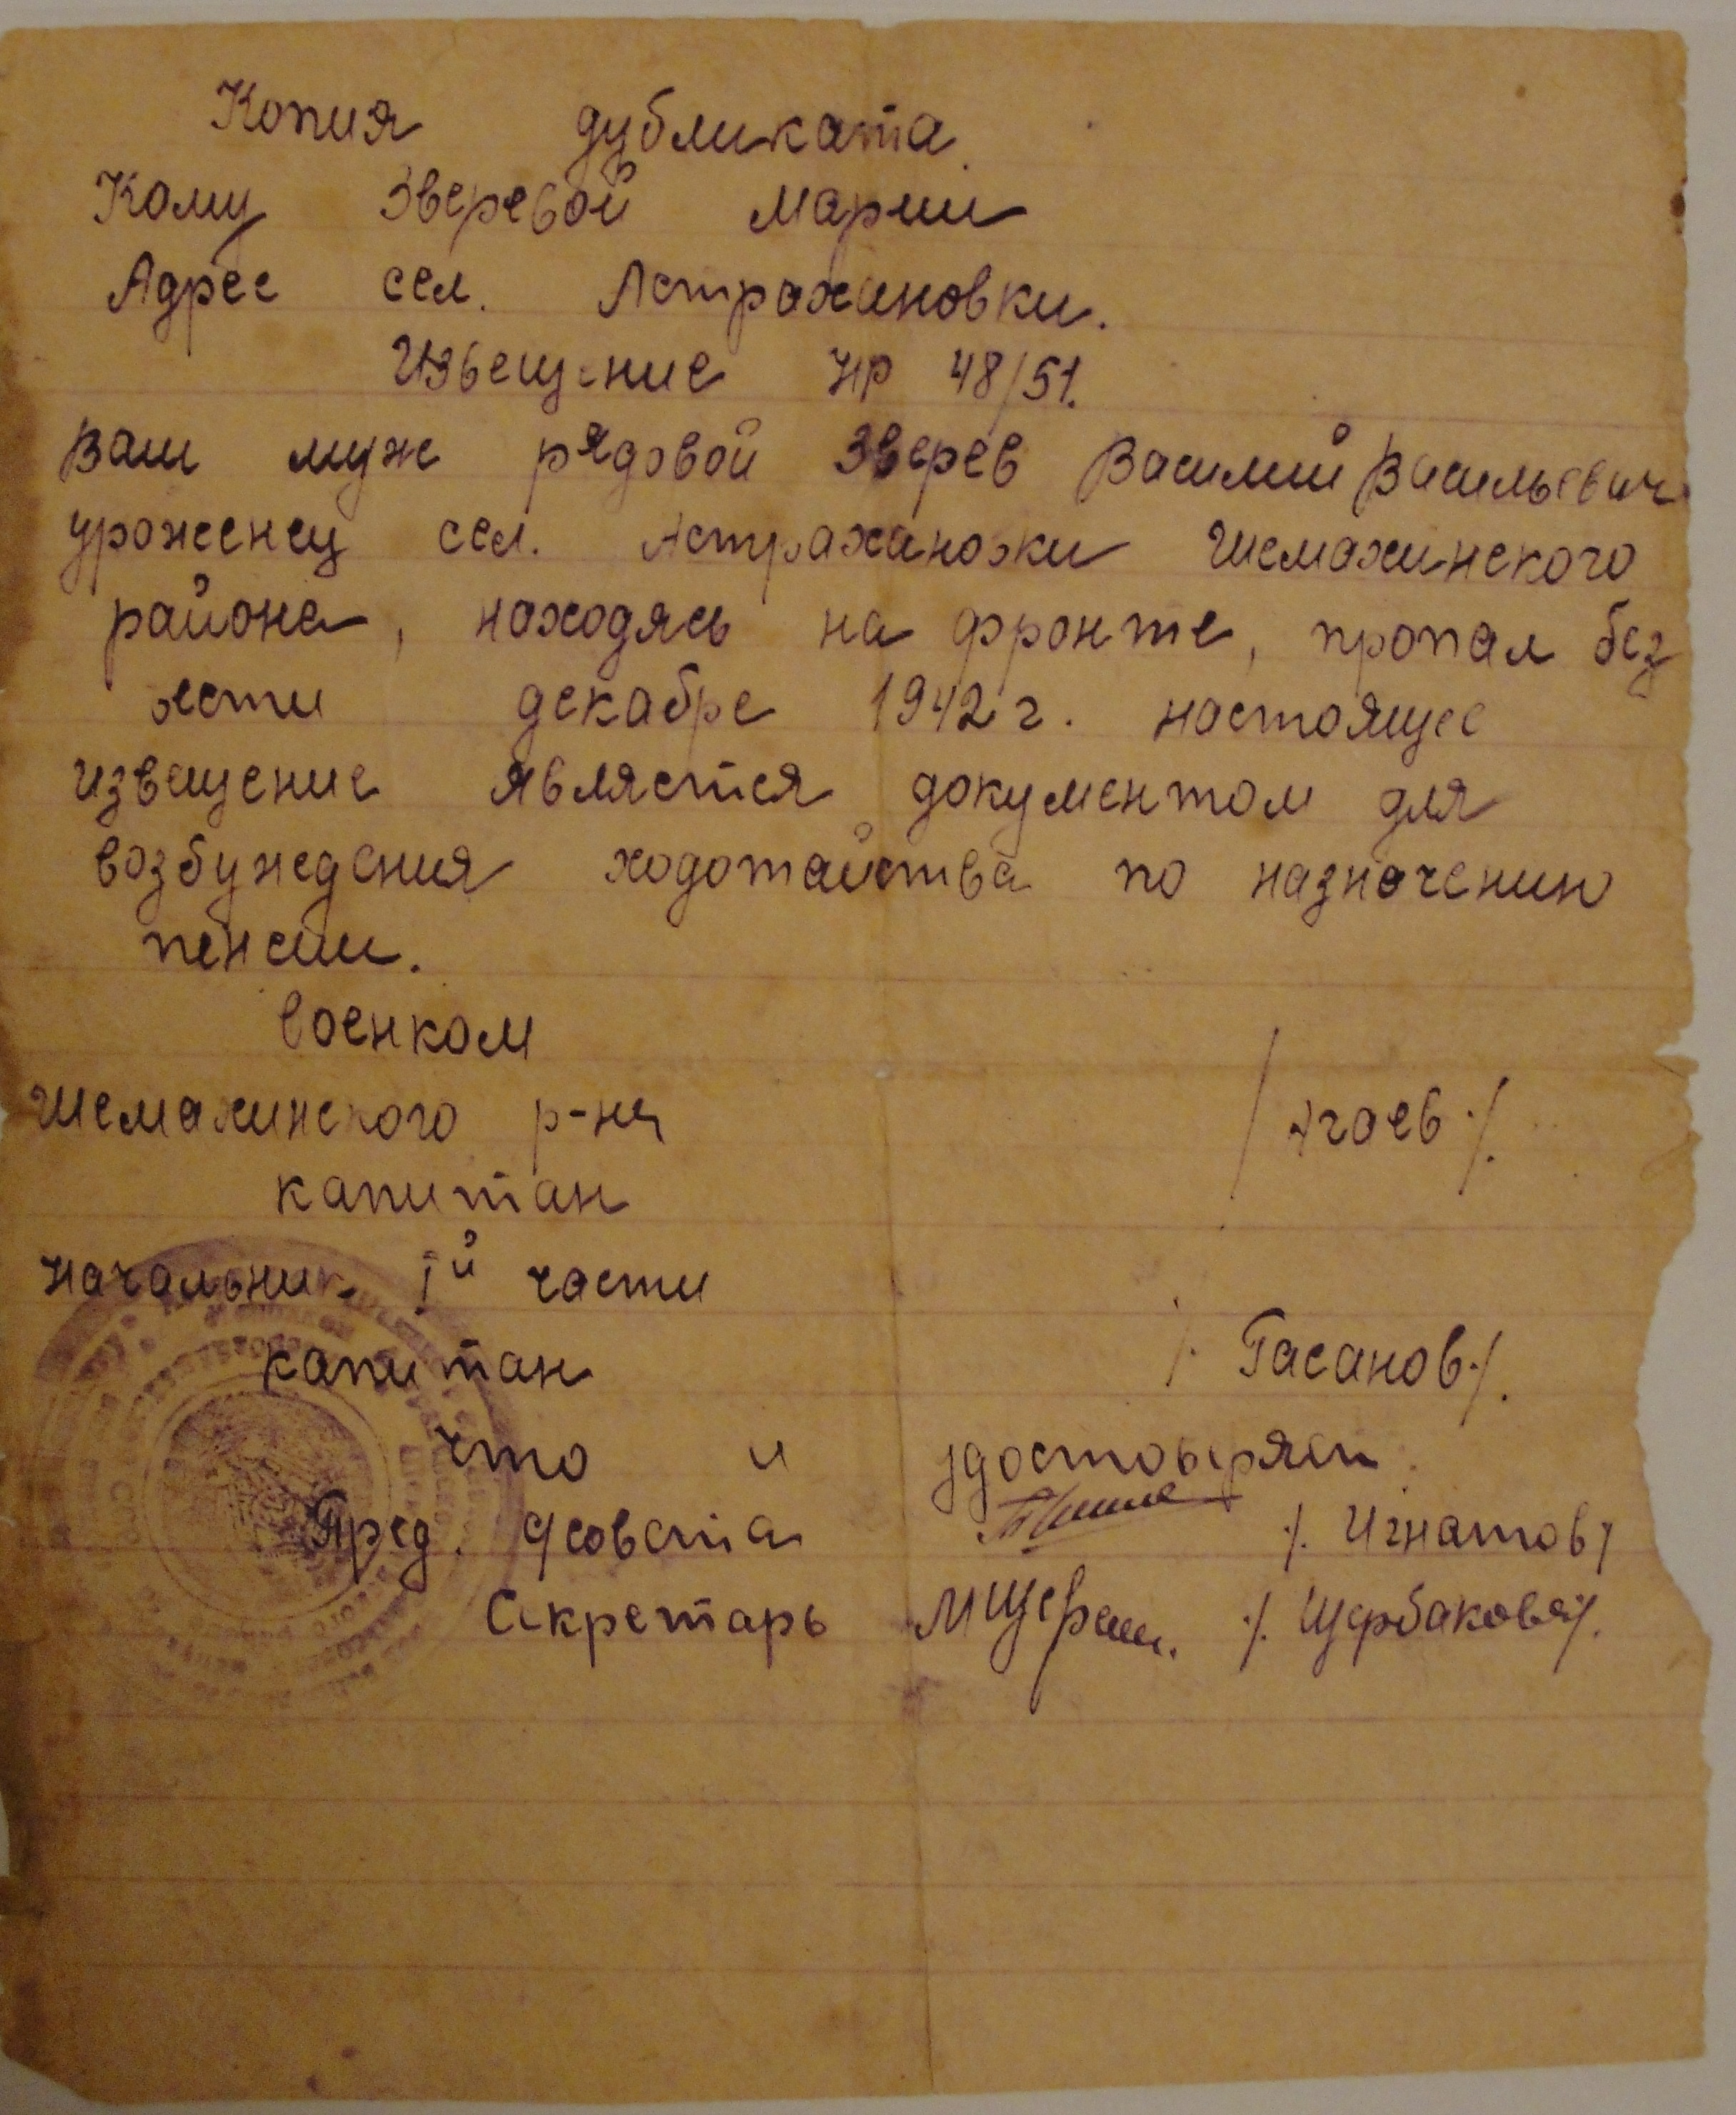 Копия дубликата
Кому Зверевой Марии
Адрес сел. Астрахановки.
Извещение Нр 48/51.
Ваш муж рядовой Зверев Василий Васильевич
уроженец сел. Астрахановки Шемахинского
района, находясь на фронте, пропал без
вести декабре 1942 г. настоящее
извещение является документом для
возбуждения ходотайства по назначению
пенсии.
военком
Шемахинского р-на
/Агаев./.
капитан
Начальник Iй части
капитан
/. Гасанов./.
что и удостоверяем
Пред. с/совета /. Игнатов/
Секретарь /. Щербакова/.